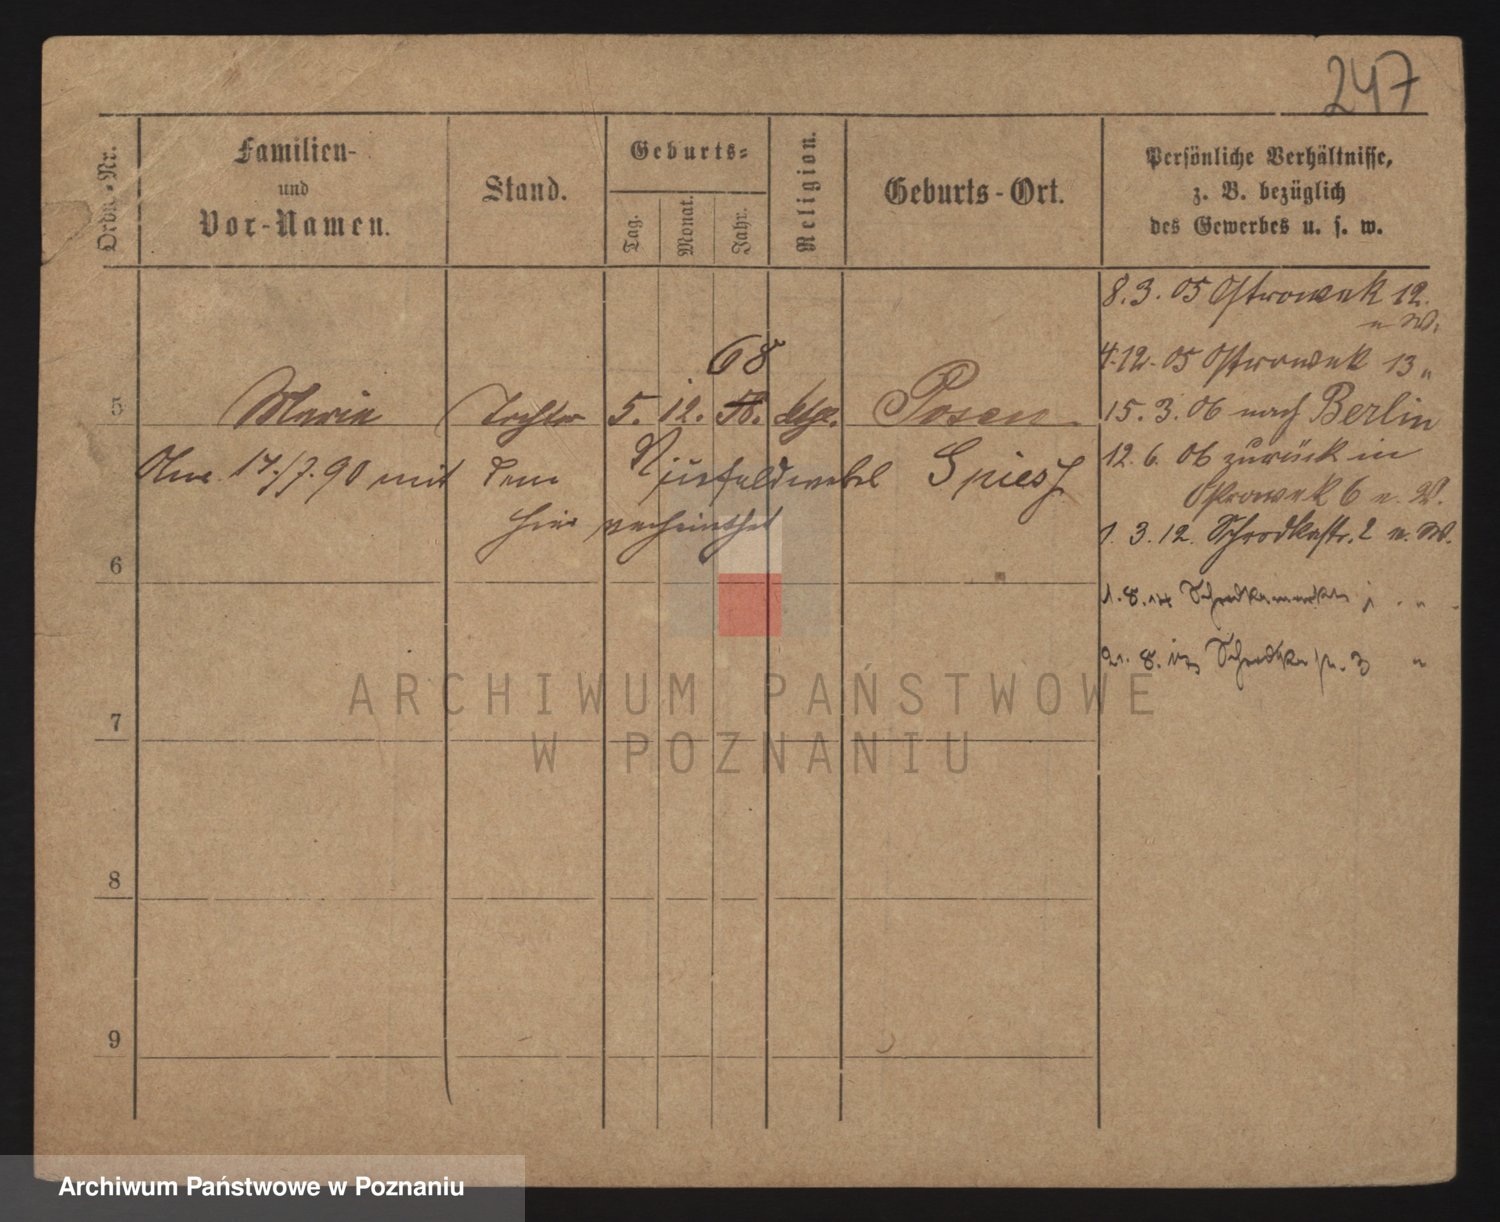 247
Ordn.-Nr.
Familien-
und
Vor-Namen.
Stand.
Geburts-
Tag.
Monat.
Jahr.
Religion.
Geburts-Ort.
Persönliche Verhältnisse,
z. B. bezüglich
des Gewerbes u. s. w.
8. 3. 05 Ostrowek 12.
u W.
4. 12. 05 Ostrowek 13 "
68
5 Marie Tochter 5. 12. Posen
15. 3. 06 nach Berlin
17/7. 90 mit dem Vizefeldwebel Spiess
hier verheirathet
12. 6. 06 zurück in
Ostrowek 6 u. W.
1. 3. 12. Schrodkastr. 2 u. W.
6
1. 8. 14 Schrodkamarkt
21. 8. Schrodka 3 "
7
8
9
ARCHIWUM PAŃSTWOWE
W POZNANIU
Archiwum Państwowe w Poznaniu